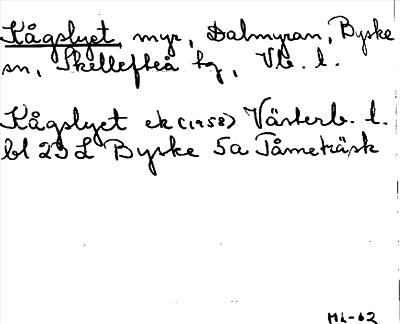 Kågslyet, myr, Dalmyran, Byske
sn, Skellefteå tg, Vb. l.
Kågslyet ek (1958) Västerb. l.
bl 23 L Byske 5a Tåmeträsk
ML-62